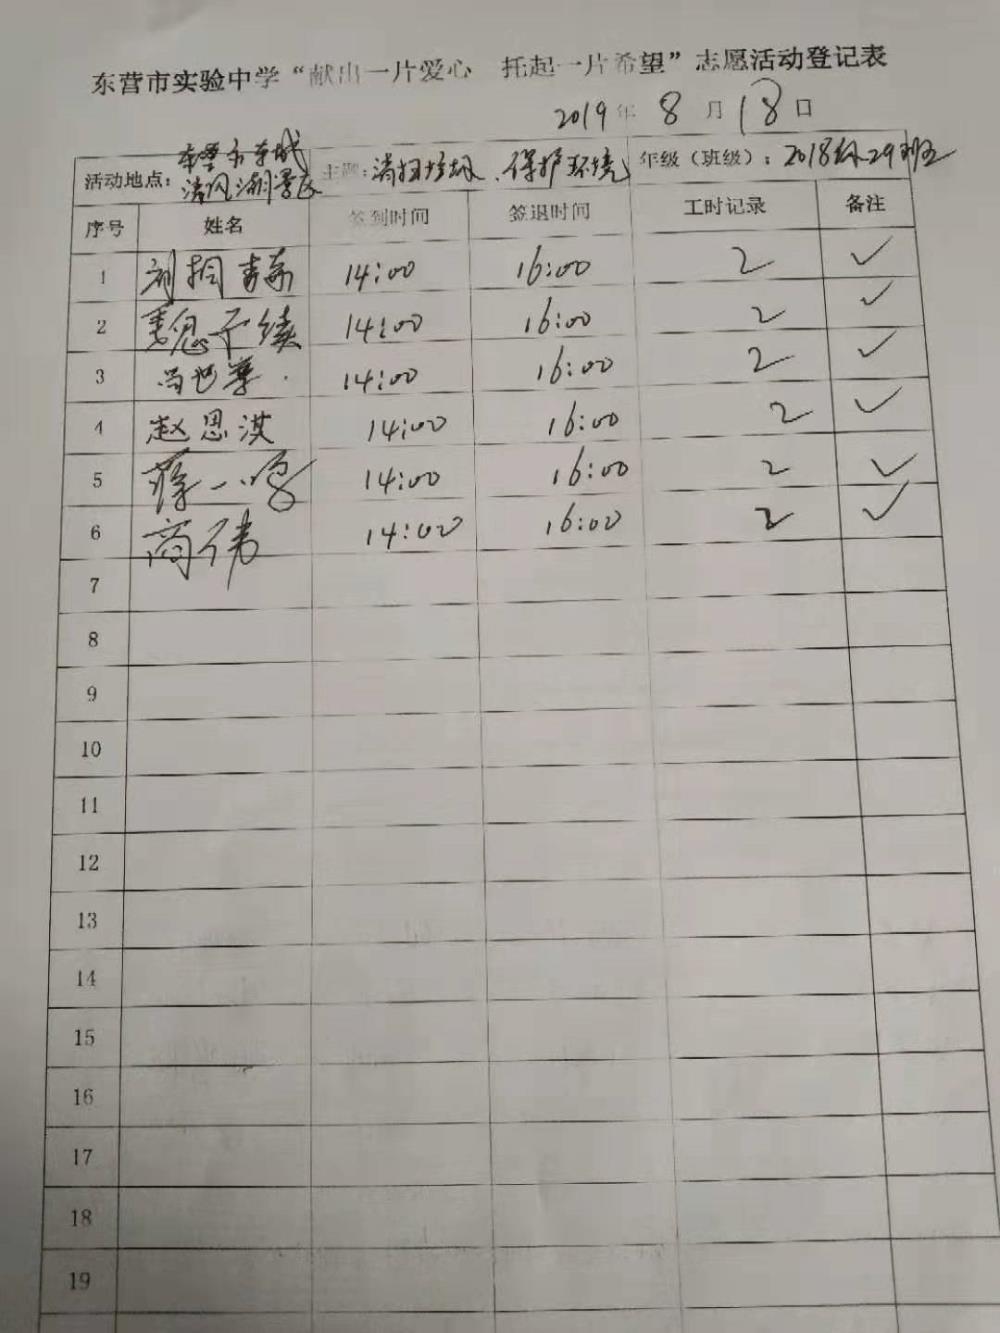 东营市实验中学“献出一片爱心 托起一片希望”志愿活动登记表
2019年 8 月 18 日
活动地点：东营市东城清风湖景区 主题：清扫垃圾、保护环境 年级（班级）：2018级29班
序号 姓名 签到时间 签退时间 工时记录 备注
1 刘桐 14:00 16:00 2 ✓
2 14:00 16:00 2 ✓
3 14:00 16:00 2 ✓
4 赵恩淇 14:00 16:00 2 ✓
5 薛一鸣 14:00 16:00 2 ✓
6 商伟 14:00 16:00 2 ✓
7
8
9
10
11
12
13
14
15
16
17
18
19